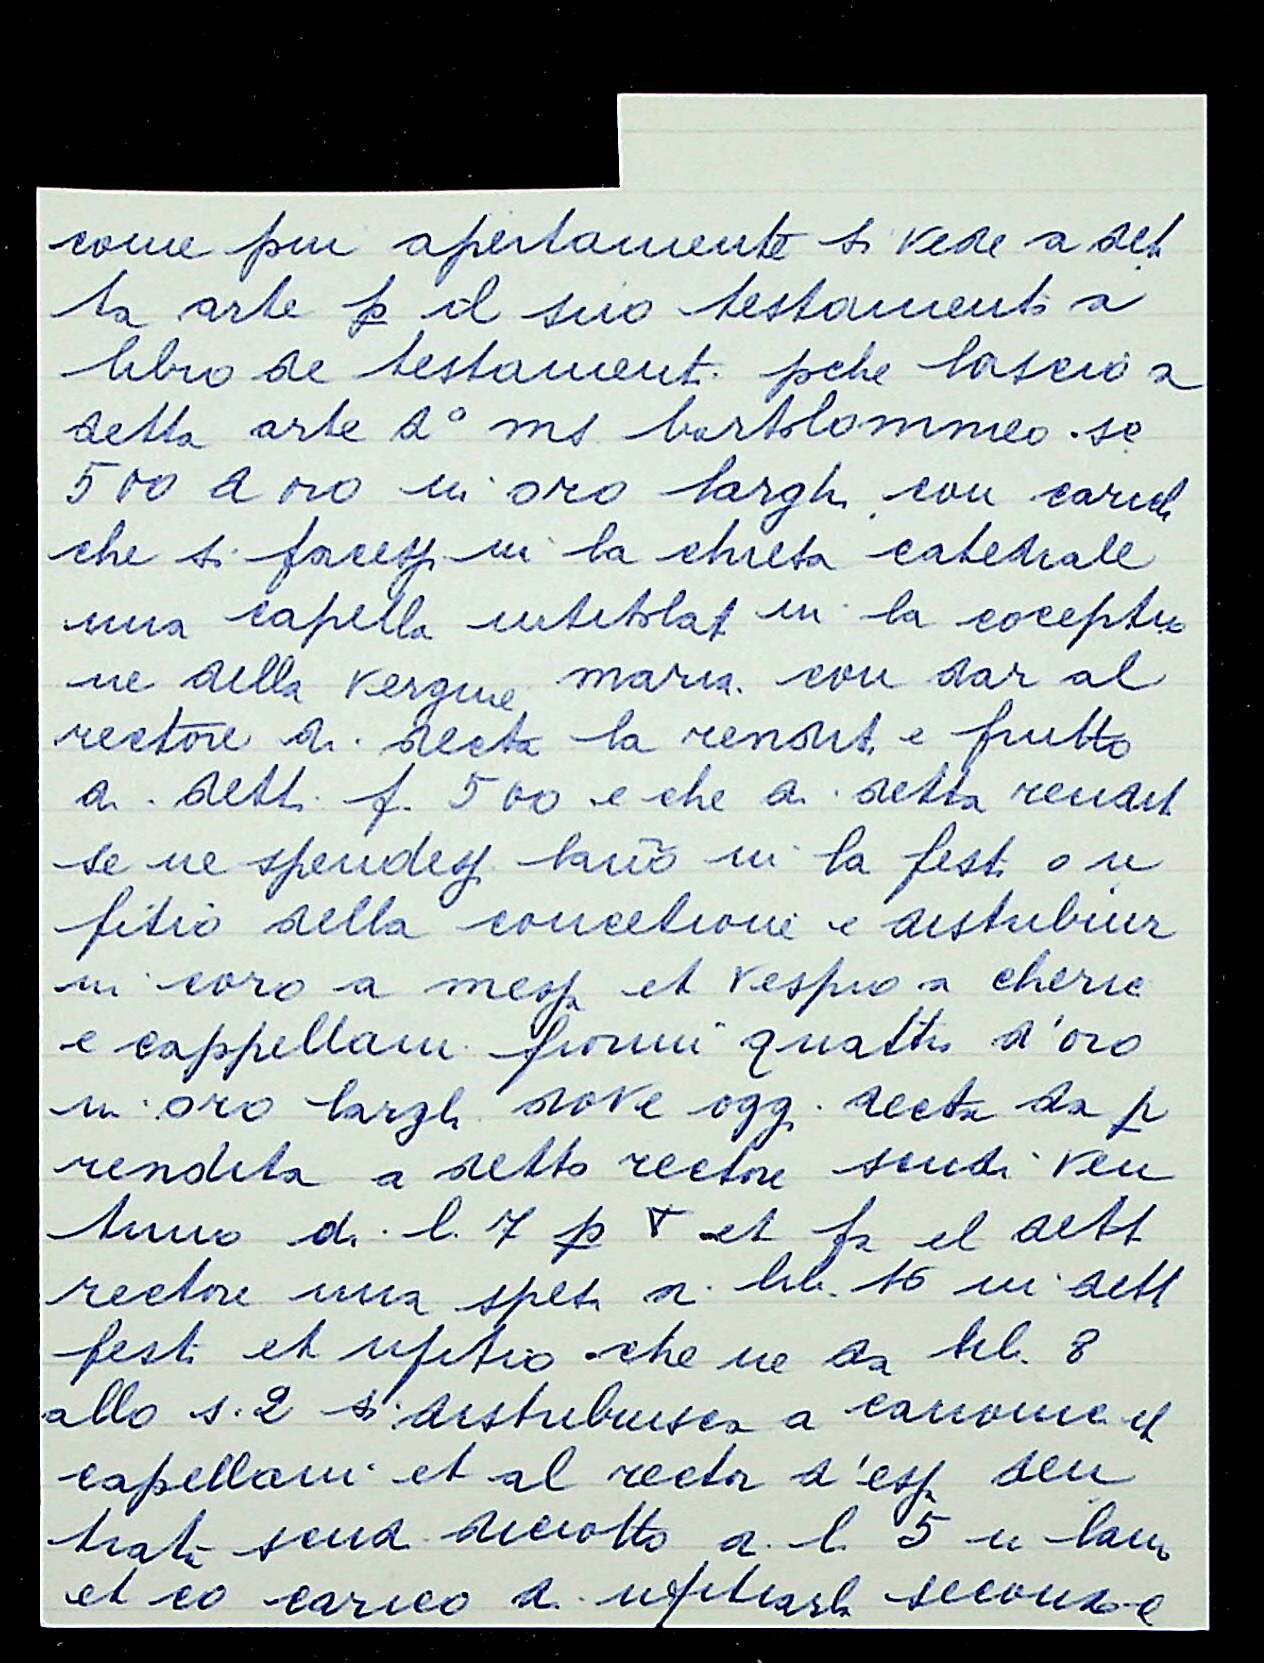 come piu apertamente si vede a det
ta arte p il suo testamento a
libro de testamenti pche lascio a
detta arte do ms bartolommeo sc
500 d oro in oro larghi con carich
che si facessi in la chiesa catedrale
una capella intitolat in la coceptio
ne della vergine maria con dar al
rectore di decta la rendita e frutto
di detti f. 500 e che di detta rendit
se ne spendessi lano in la festi o u
fitio della concetione e distribuir
in coro a messa et vespro a cheric
e cappellani fiorini quattro d'oro
in oro larghi dove oggi decta da p
rendita a detto rectore scudi ven
tuno di l. 7 p et fa el dett
rectore una spesa di lib. 16 in dett
festi et ufitio che ne da lib. 8
allo s. 2 si distribuisca a canonici et
capellani et al rector d'essa den
trata scudi diciotto di l. 5 u lano
et co carico di ufitiarla secondo e